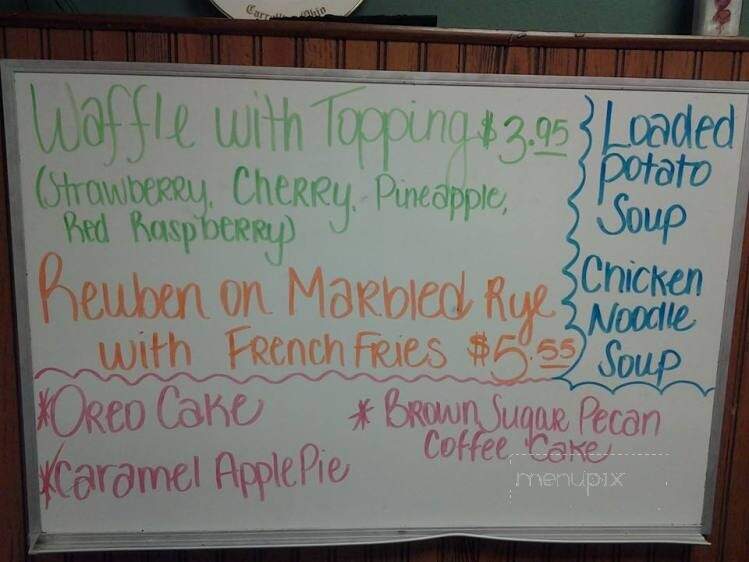 Carrollton Ohio
Waffle with Topping $3.95
(Strawberry, Cherry, Pineapple,
Red Raspberry)
Reuben on Marbled Rye
with French Fries $5.55
Loaded
Potato
Soup
Chicken
Noodle
Soup
*Oreo Cake
*Caramel Apple Pie
* Brown Sugar Pecan
Coffee Cake
menupix